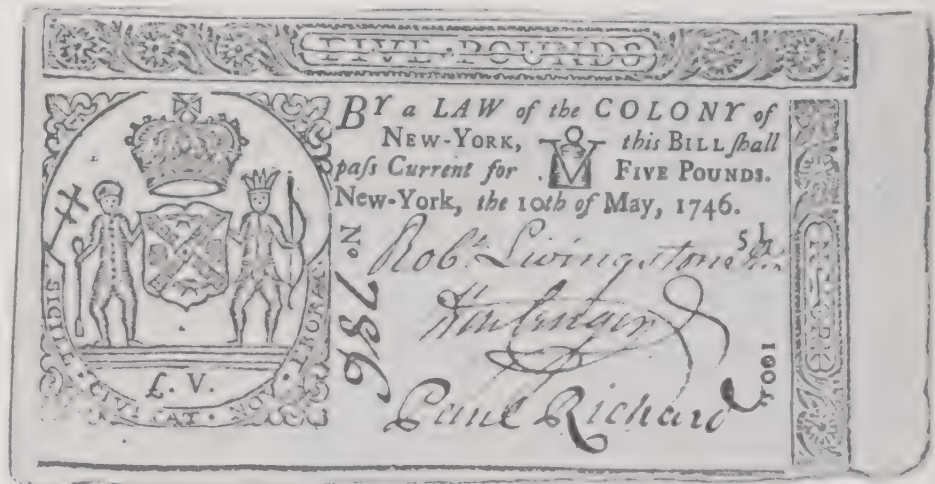 FIVE POUNDS
BY a LAW of the COLONY of
NEW-YORK, this BILL ſhall
paſs Current for FIVE POUNDS.
New-York, the 10th of May, 1746.
5 l.
No. 786
Robt. Livingstone
Paul Richard
100s.
SIGILL. CIVITAT. NOV.
£. V.